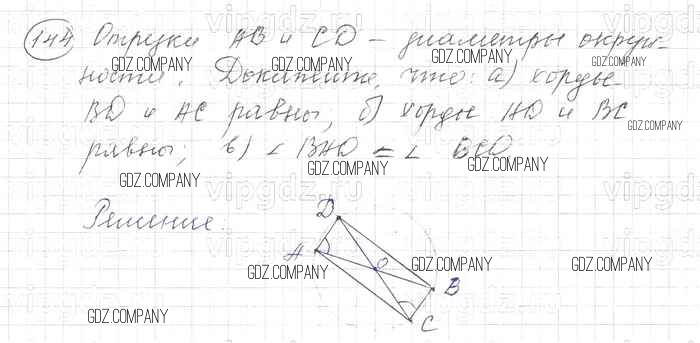 144 Отрезки AB и CD – диаметры окруж-
ности. Докажите, что: а) хорды
BD и AC равны; б) хорды AD и BC
равны; в) ∠ BAD = ∠ BCD
Решение.
D
A
O
B
C
GDZ.COMPANY
GDZ.COMPANY
GDZ.COMPANY
GDZ.COMPANY
GDZ.COMPANY
GDZ.COMPANY
GDZ.COMPANY
GDZ.COMPANY
GDZ.COMPANY
GDZ.COMPANY
GDZ.COMPANY
vipgdz.ru
vipgdz.ru
vipgdz.ru